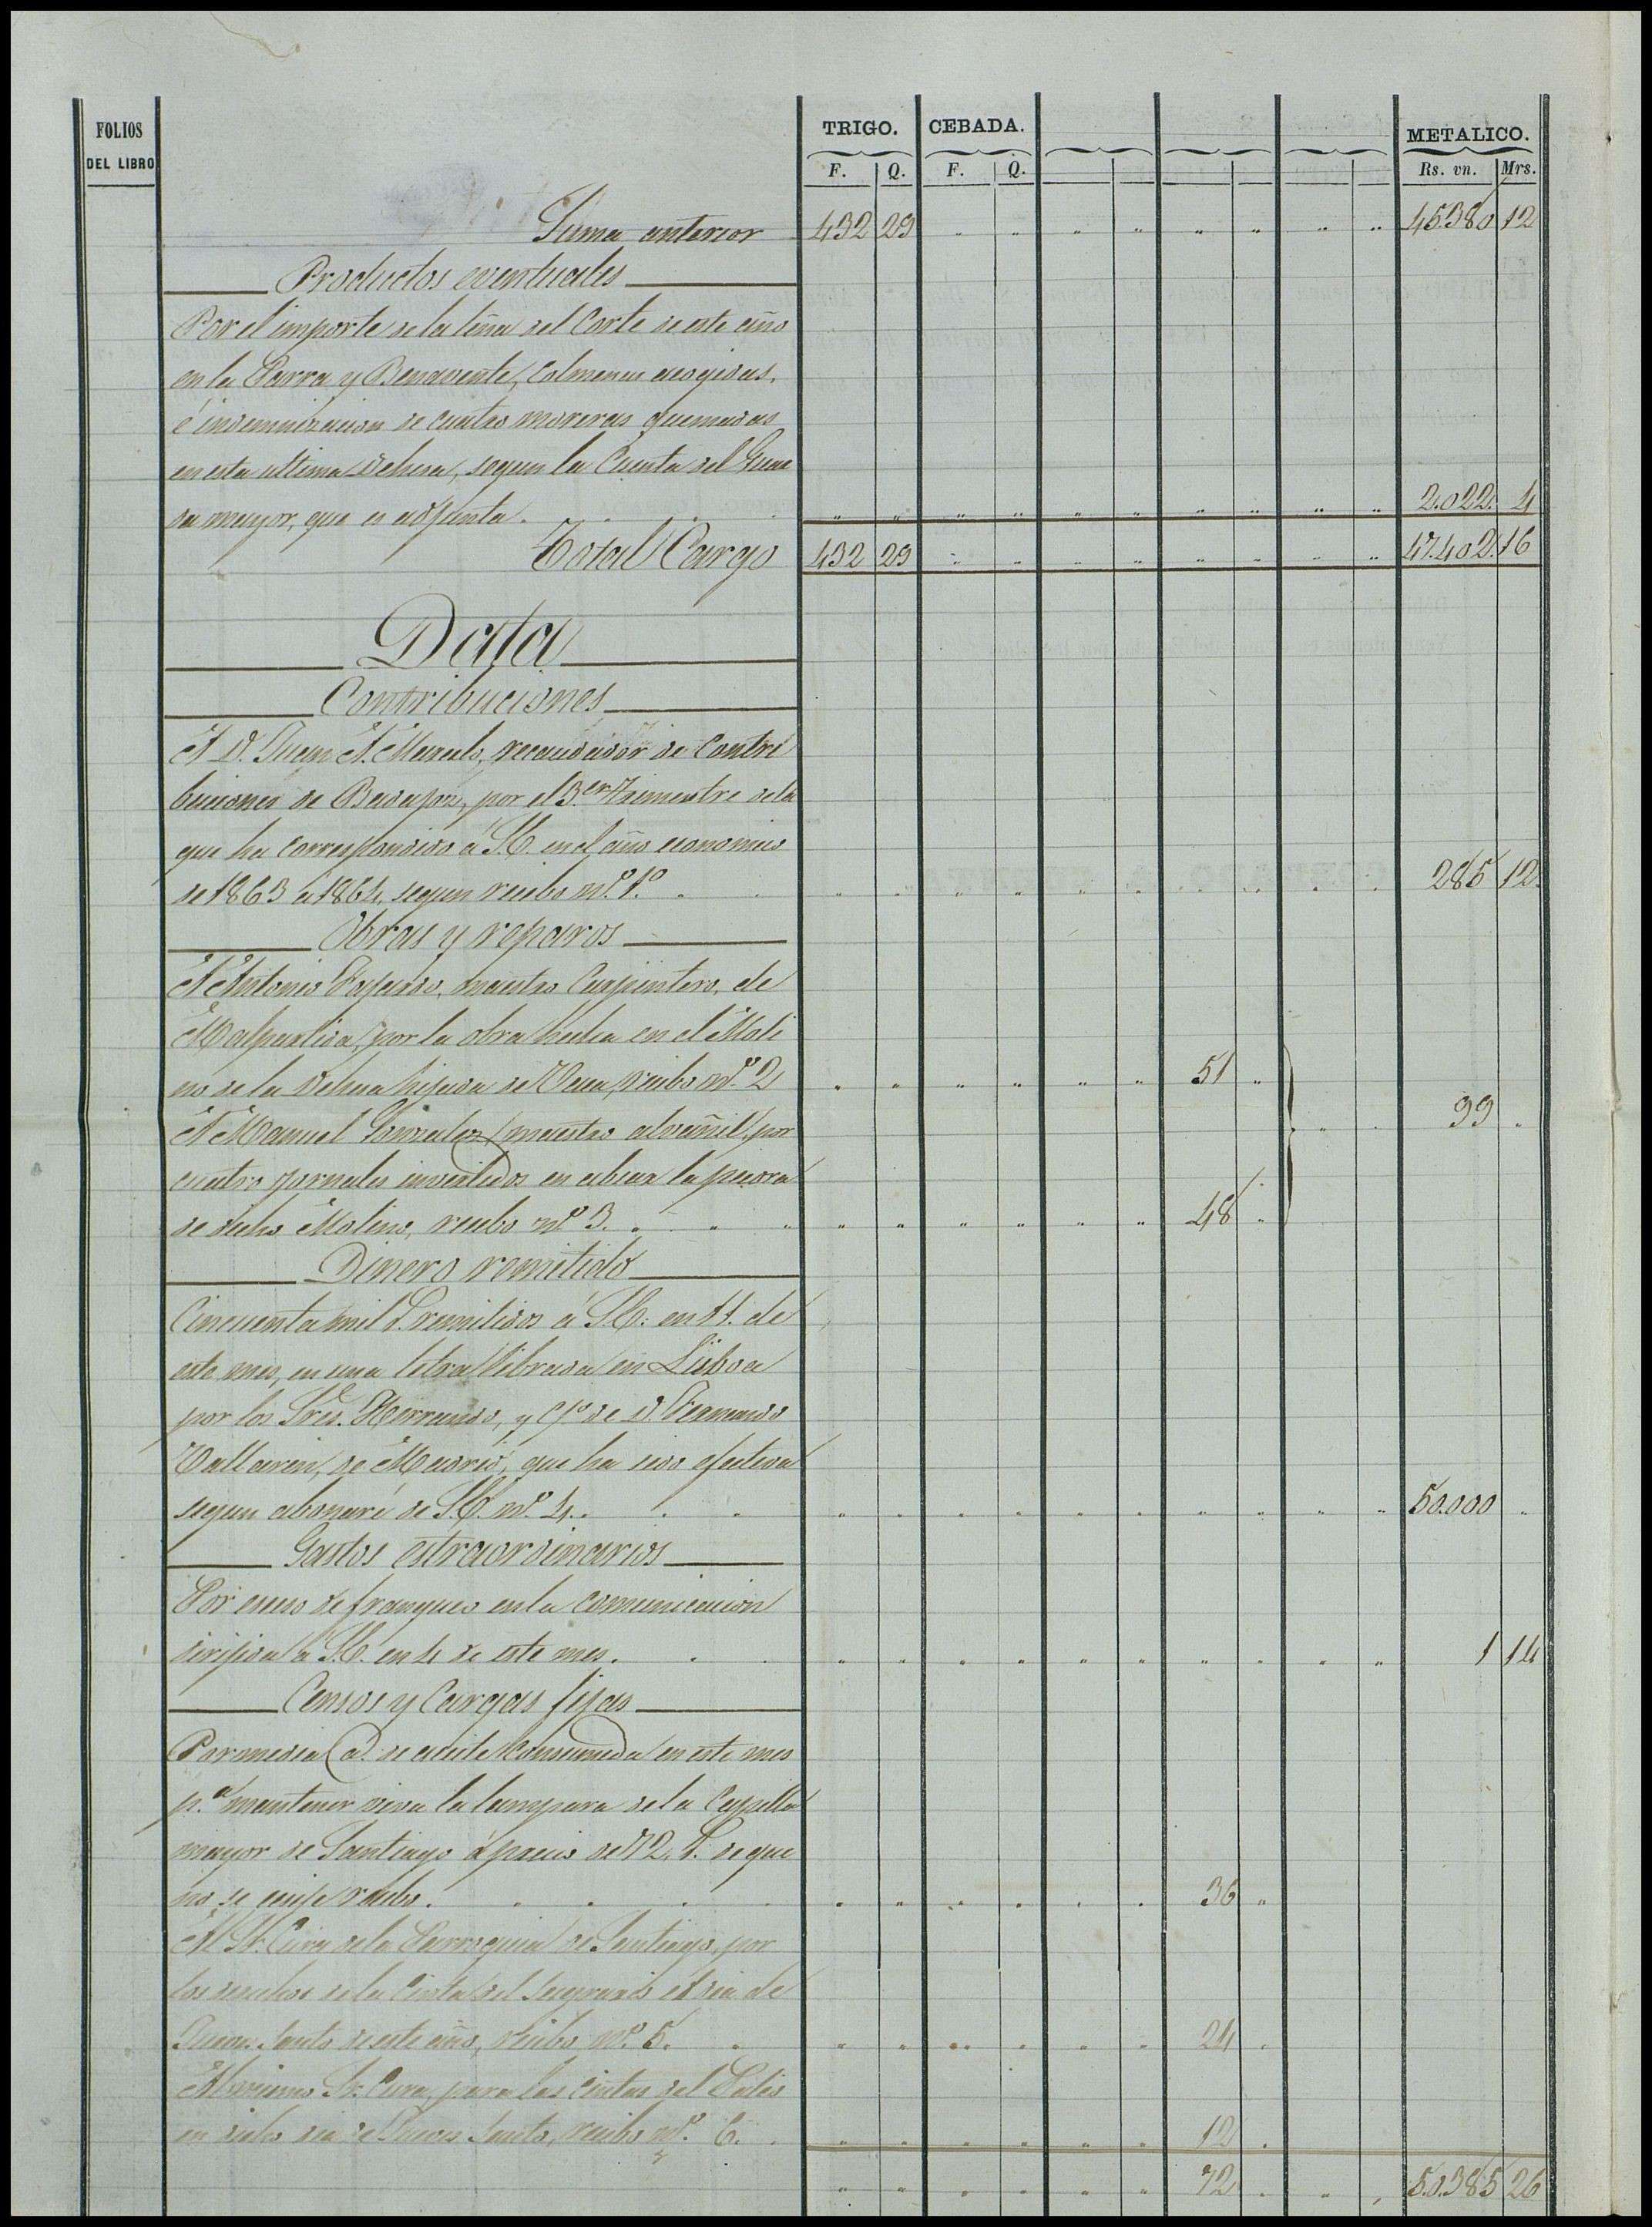 FOLIOS DEL LIBRO TRIGO. CEBADA. METALICO.
F. Q. F. Q. Rs. vn. Mrs.
Suma anterior 432 29 " " " " " " " " 45.380 12
Productos eventuales
Por el importe de la leña del Corte de este año
en la Parra y Benavente, Colmenas escogidas,
é indemnizacion de cuatro moreras quemadas
en esta ultima Dehesa, segun la Cuenta del Guar
da mayor, que es adjunta. " " " " " " " " " " 2.022. 4
Total Cargo 432 29 " " " " " " " " 47.402. 16
Data
Contribuciones
A D. Juan A. recaudador de Contri
buciones de Badajoz, por el 3.er Trimestre de la
que ha correspondido á S.E. en el año economico
de 1863 á 1864, segun recibo nº. 1º. " " " " " " " " " " 285 12.
Obras y reparos
A Antonio Fajardo, maestro Carpintero, de
Malpartida, por la obra hecha en el Moli
no de la Dehesa hijada de Vaca, recibo nº. 2 " " " " " " 51 "
99 "
A Manuel Gonzalez maestro alvañil, por
cuatro jornales invertidos en la piedra
de dicho Molino, recibo nº 3. " " " " " " 48 "
Dinero remitido
Cincuenta mil r. remitidos á S.E. en 11. de
este mes, en una letra librada en Lisboa
por los Sres. y Cª. de D. Fernando
de Madrid, que ha sido efectiva
segun abonaré de S.E. nº. 4. " " " " " " " " " " 50.000 "
Gastos estraordinarios
Por esceso de franqueo en la comunicacion
dirijida á S.E. en 4 de este mes. " " " " " " " " " " 1 14
Censos y Cargas fijas
Por media @. de aceite consumida en este mes
p.ª mantener viva la lampara de la Capilla
mayor de Santiago á precio de 72. r. de que
no se exije recibo. " " " " " " 36 "
Al Sr. Cura de la Parroquia de Santiago, por
los derechos de la Cinta del Sagrario el dia de
Jueves Santo de este año, recibo nº. 5. " " " " " " 24 "
Al mismo Sr. Cura, para las Cintas del Caliz
en dicho dia de Jueves Santo, recibo nº. 6. " " " " " " 12 "
" " " " " " 72 " " " 50.385 26